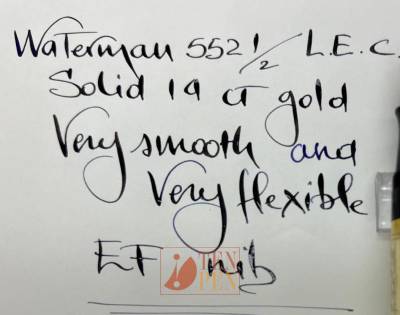 Waterman 552 1/2 L.E.C.
Solid 14 ct gold
Very smooth and
Very flexible
EF nib
TEN PEN